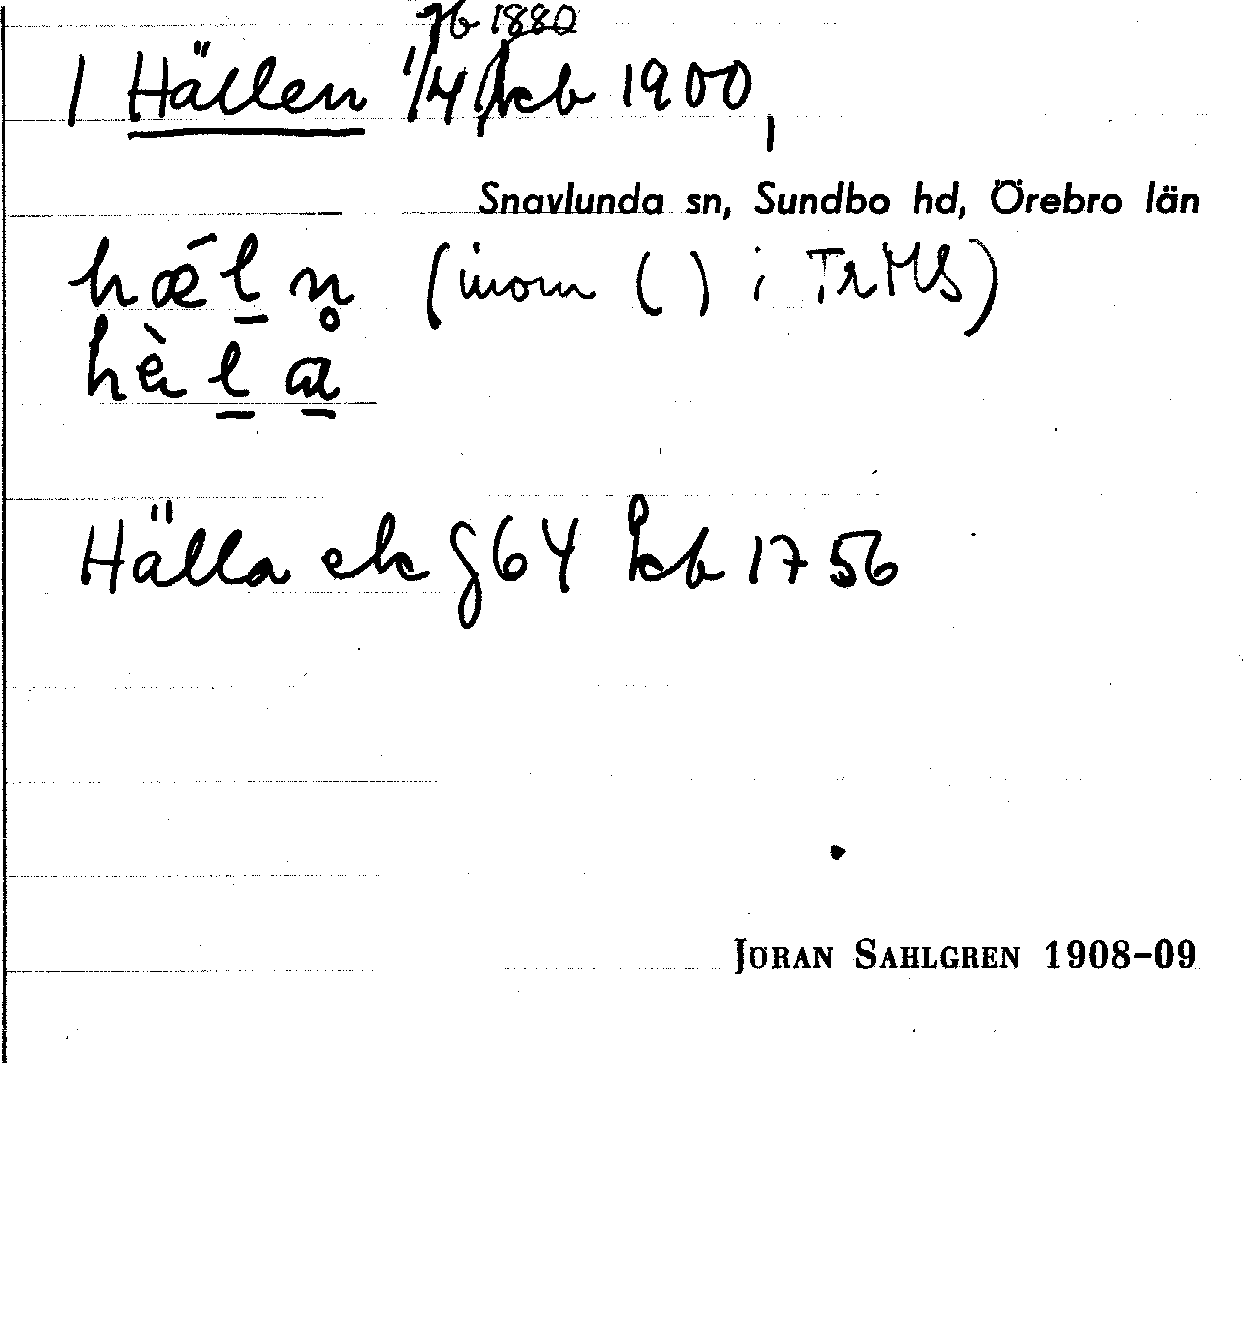 jb 1880
1 Hällen 1/4 kb 1900,
Snavlunda sn, Sundbo hd, Örebro län
hǽl̲n̥ (inom ( ) i TrMS)
hèl̲a̲
Hälla ek §64 kb 1756
JÖRAN SAHLGREN 1908-09